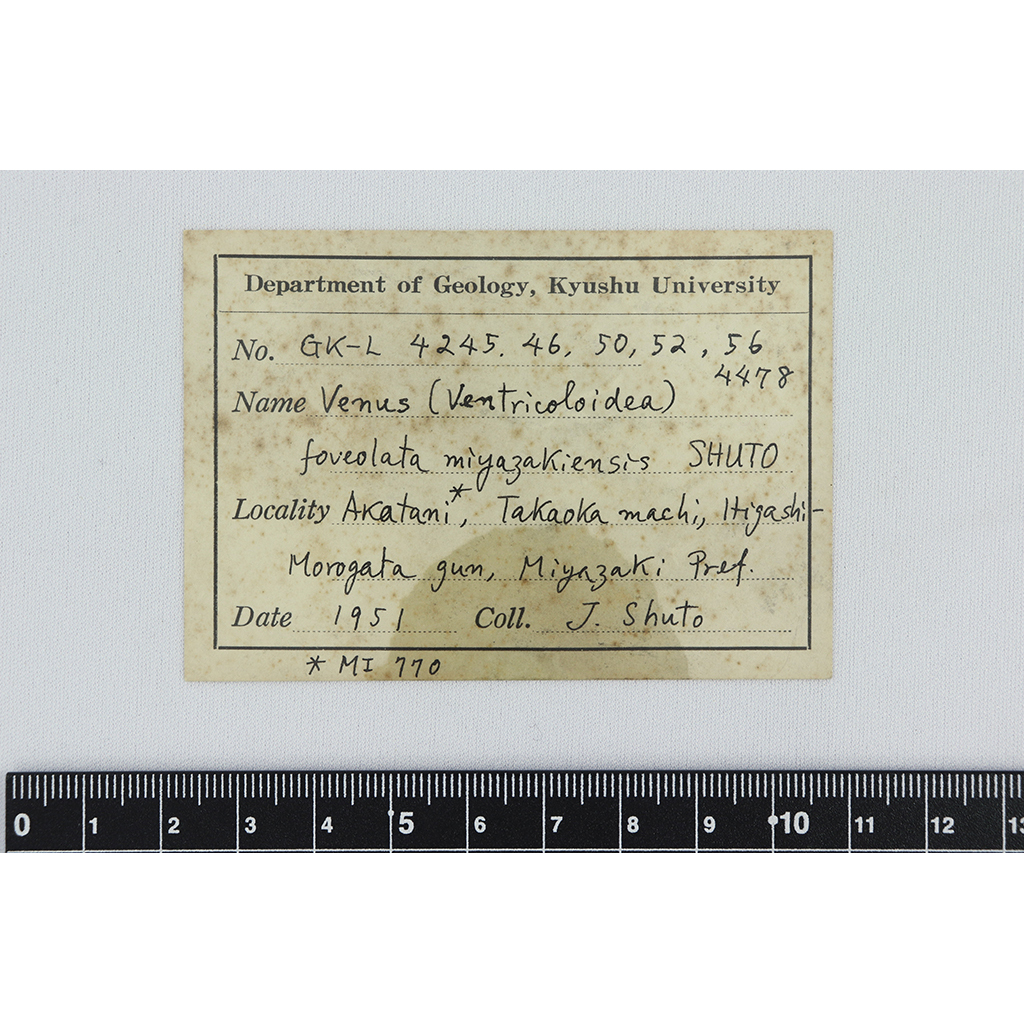 Department of Geology, Kyushu University
No. GK-L 4245. 46, 50, 52, 56
4478
Name Venus (Ventricoloidea)
foveolata miyazakiensis SHUTO
Locality Akatani*, Takaoka machi, Higashi-
Morogata gun, Miyazaki Pref.
Date 1951 Coll. J. Shuto
* MI 770
0 1 2 3 4 5 6 7 8 9 10 11 12 13